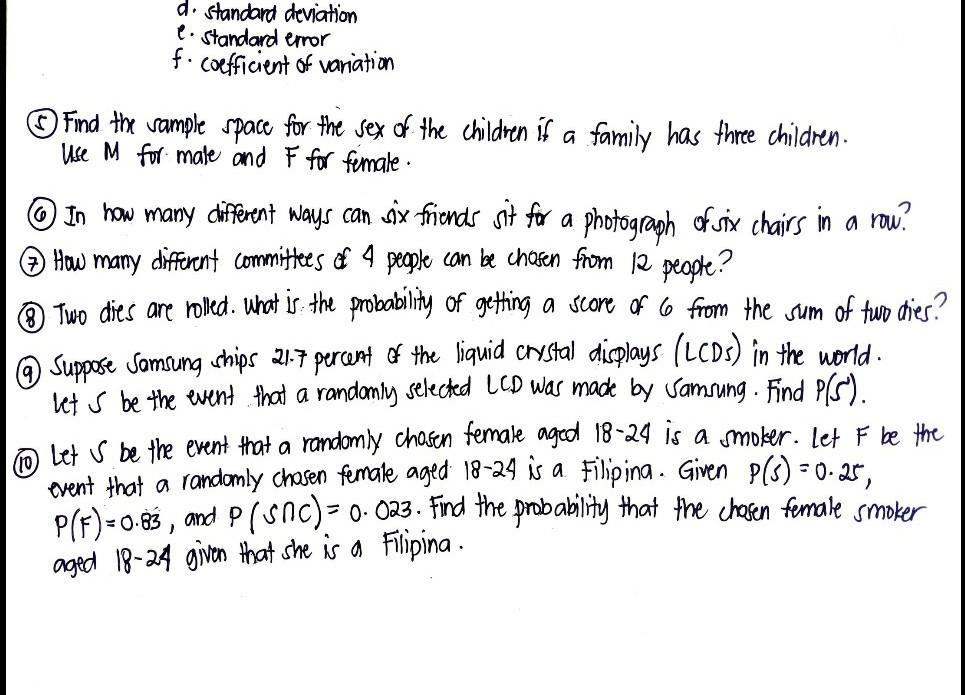 d. standard deviation
e. standard error
f. coefficient of variation
⑤ Find the sample space for the sex of the children if a family has three children.
Use M for male and F for female.
⑥ In how many different ways can six friends sit for a photograph of six chairs in a row?
⑦ How many different committees of 4 people can be chosen from 12 people?
⑧ Two dies are rolled. What is the probability of getting a score of 6 from the sum of two dies?
⑨ Suppose Samsung ships 21.7 percent of the liquid crystal displays (LCDs) in the world.
Let S be the event that a randomly selected LCD was made by Samsung. Find P(S').
⑩ Let S be the event that a randomly chosen female aged 18-24 is a smoker. Let F be the
event that a randomly chosen female aged 18-24 is a Filipina. Given P(S) = 0.25,
P(F) = 0.83, and P(S∩C) = 0.023. Find the probability that the chosen female smoker
aged 18-24 given that she is a Filipina.